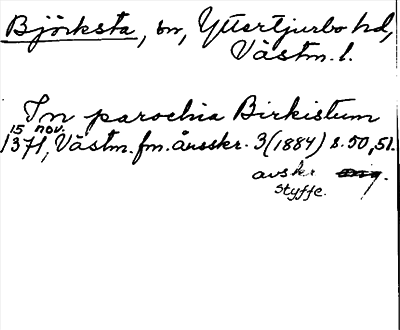 Björksta, sn, Yttertjurbo hd,
Västm. l.
In parochia Birkistum
15 nov.
1371, Västm. fm. årsskr. 3 (1884) s. 50, 51.
avskr
Styffe.